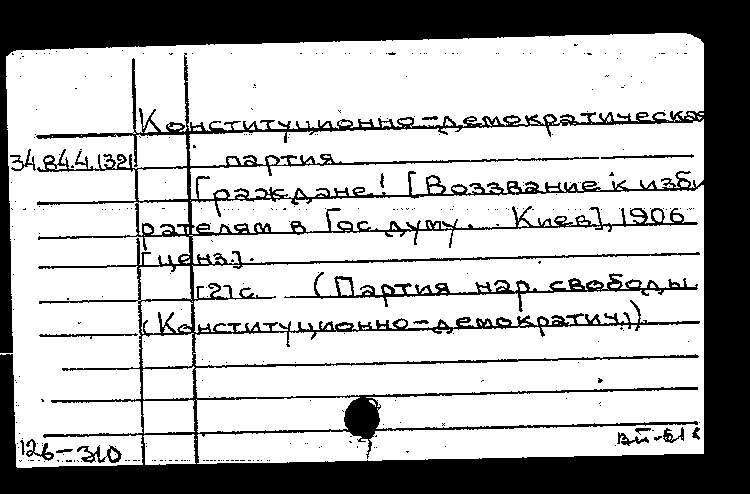 Конституционно-демократическая
34.84.4.1321 партия
Граждане! [Воззвание к изби
рателям в Гос. думу. Киев], 1906
[ценз.].
[2] с. (Партия нар. свободы
(Конституционно-демократич.))
126-310